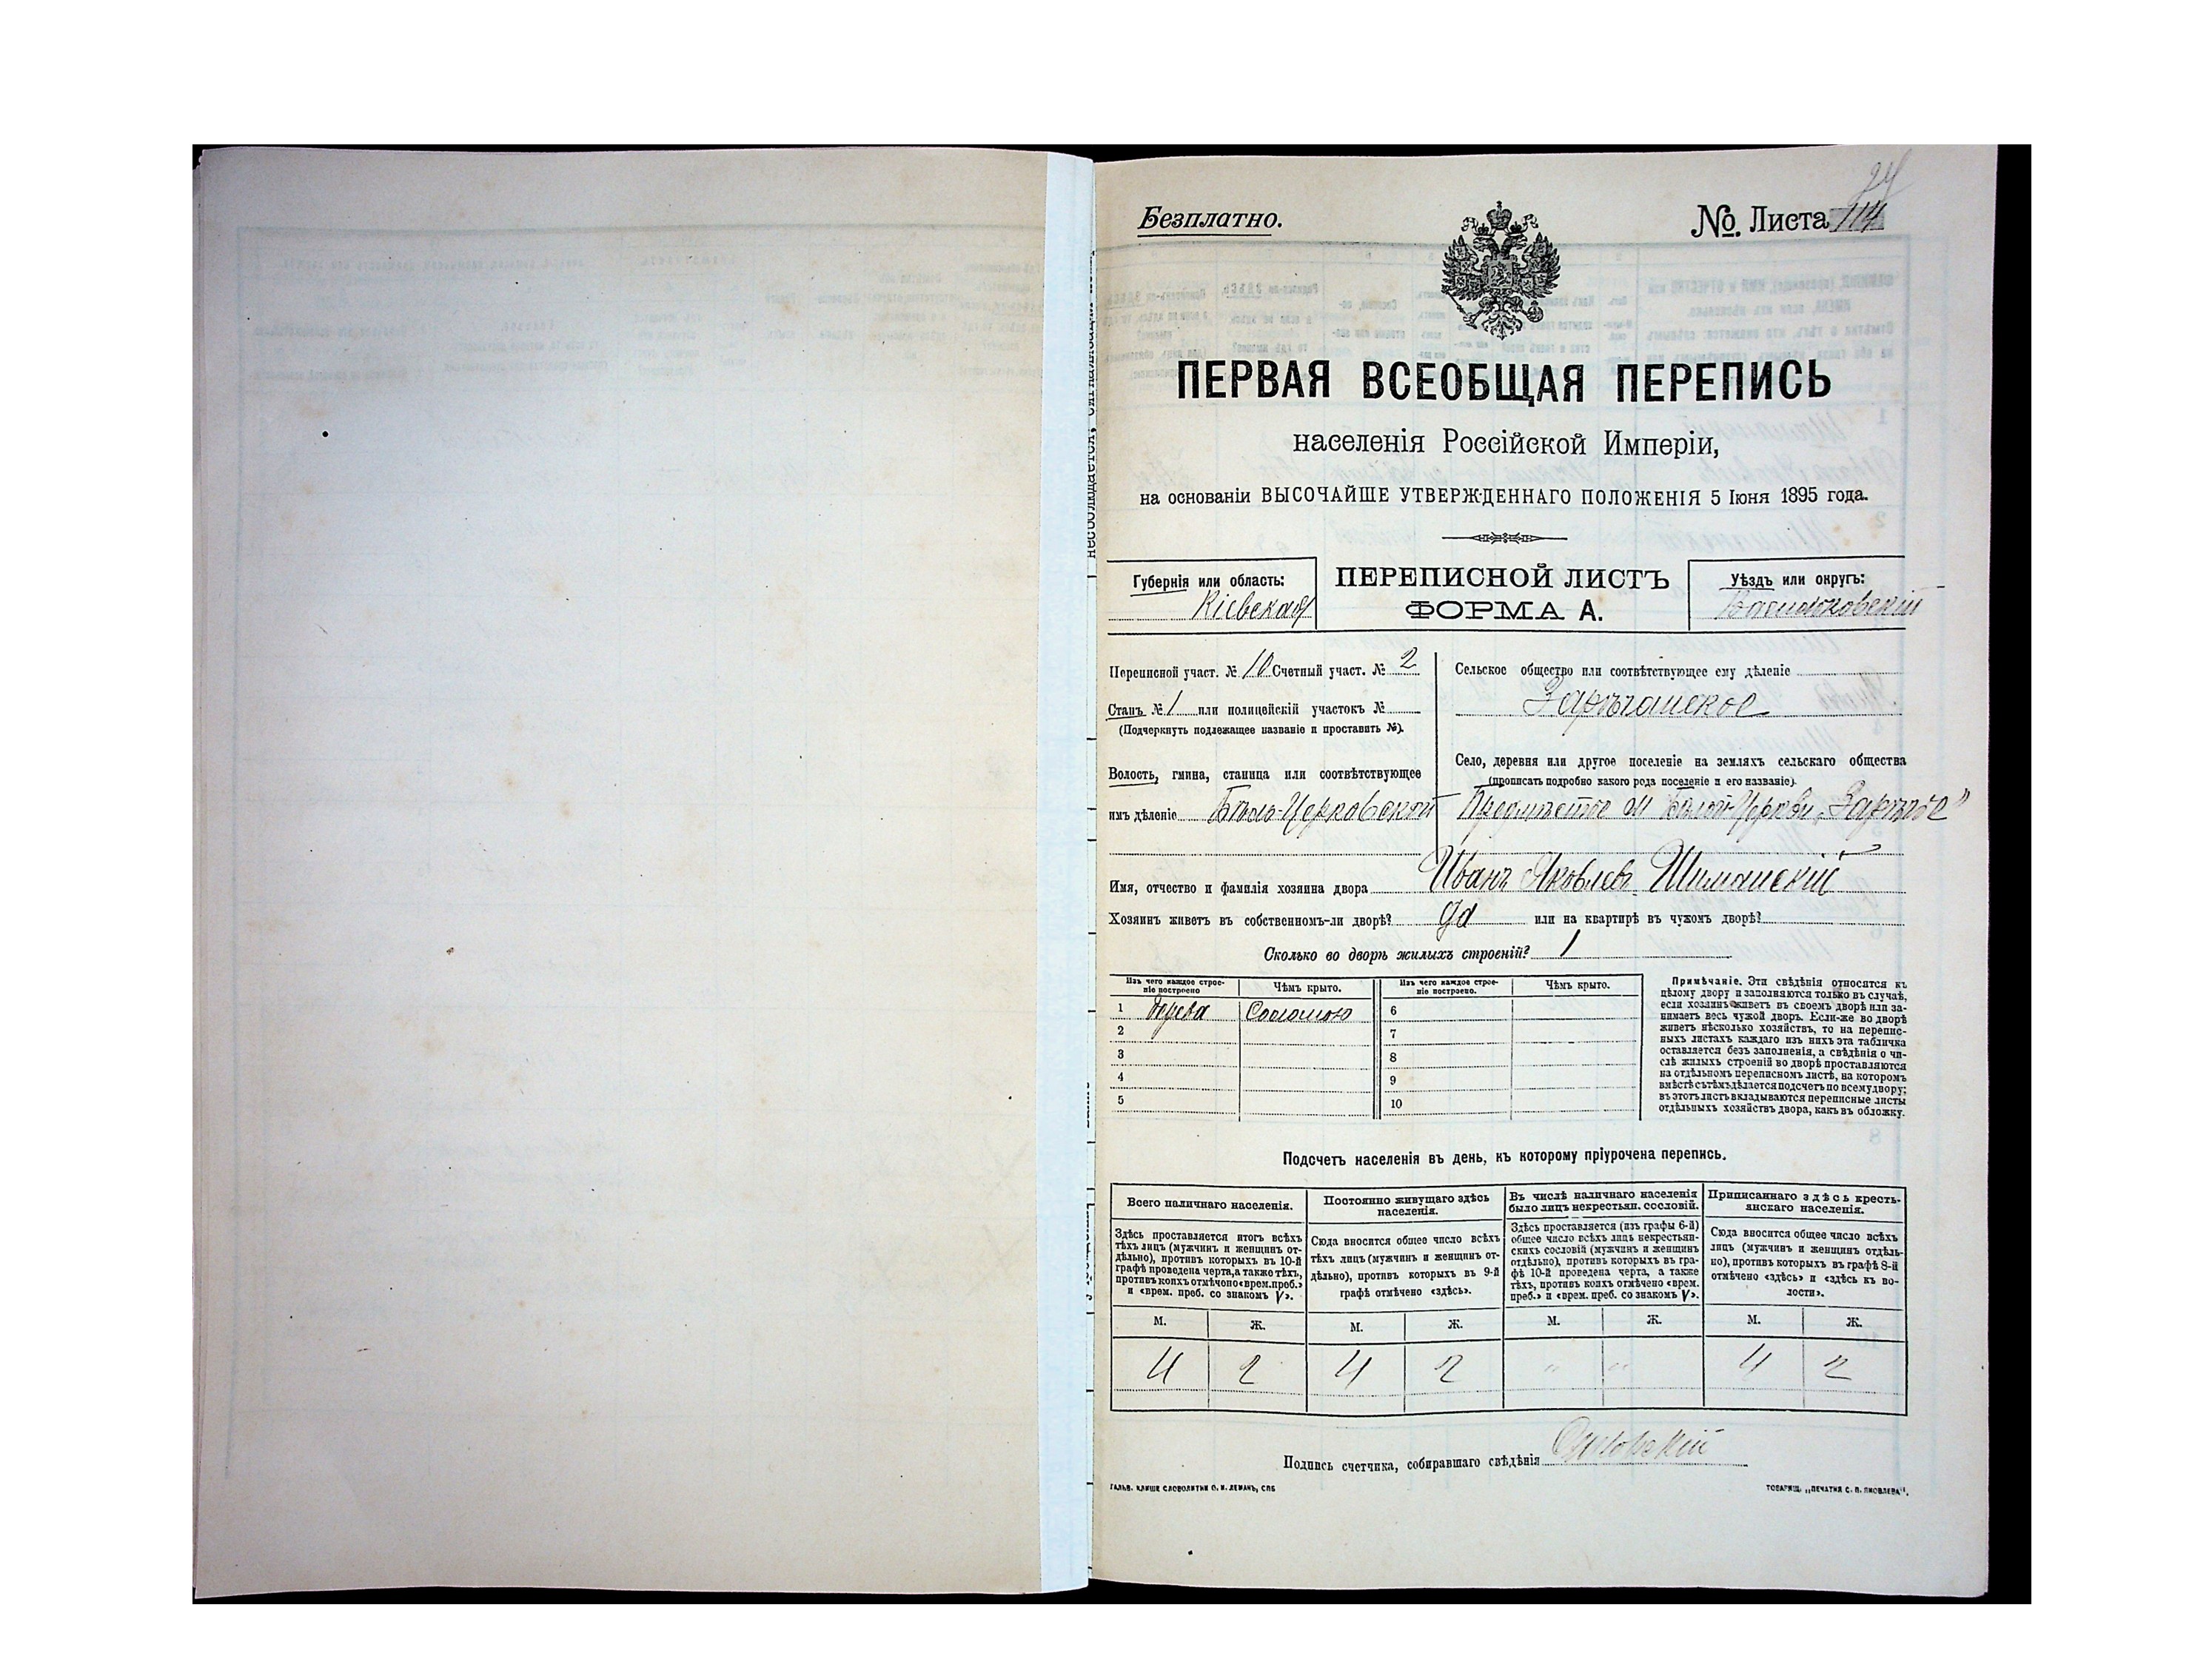 24
Безплатно.
№ Листа 114
ПЕРВАЯ ВСЕОБЩАЯ ПЕРЕПИСЬ
населенія Россійской Имперіи,
на основаніи ВЫСОЧАЙШЕ УТВЕРЖДЕННАГО ПОЛОЖЕНІЯ 5 Іюня 1895 года.
Губернія или область:
Кіевская
ПЕРЕПИСНОЙ ЛИСТЪ
ФОРМА А.
Уѣздъ или округъ:
Васильковскій
Переписной участ. № 10 Счетный участ. № 2
Станъ № 1 или полицейскій участокъ №
(Подчеркнуть подлежащее названіе и проставить №).
Волость, гмина, станица или соотвѣтствующее
имъ дѣленіе Бѣло-Церковской
Сельское общество или соотвѣтствующее ему дѣленіе
Зарѣчанское
Село, деревня или другое поселеніе на земляхъ сельскаго общества
(прописать подробно какого рода поселеніе и его названіе).
Предмѣстье м Бѣлой-Церкви „Зарѣчье"
Имя, отчество и фамилія хозяина двора Иванъ Яковлевъ Шиманскій
Хозяинъ живетъ въ собственномъ-ли дворѣ? да или на квартирѣ въ чужомъ дворѣ?
Сколько во дворѣ жилыхъ строеній? 1
Изъ чего каждое строеніе построено
Чѣмъ крыто.
Изъ чего каждое строеніе построено.
Чѣмъ крыто.
1 дерева Соломою 6
2 7
3 8
4 9
5 10
Примѣчаніе. Эти свѣдѣнія относятся къ
цѣлому двору и заполняются только въ случаѣ,
если хозяинъ живетъ въ своемъ дворѣ или за-
нимаетъ весь чужой дворъ. Если-же во дворѣ
живетъ нѣсколько хозяйствъ, то на перепис-
ныхъ листахъ каждаго изъ нихъ эта табличка
оставляется безъ заполненія, а свѣдѣнія о чи-
слѣ жилыхъ строеній во дворѣ проставляются
на отдѣльномъ переписномъ листѣ, на которомъ
вмѣстѣ съ тѣмъ дѣлается подсчетъ по всему двору;
въ этотъ листъ вкладываются переписные листы
отдѣльныхъ хозяйствъ двора, какъ въ обложку.
Подсчетъ населенія въ день, къ которому пріурочена перепись.
Всего наличнаго населенія.
Здѣсь проставляется итогъ всѣхъ
тѣхъ лицъ (мужчинъ и женщинъ от-
дѣльно), противъ которыхъ въ 10-й
графѣ проведена черта, а также тѣхъ,
противъ коихъ отмѣчено «врем. преб.»
и «врем. преб. со знакомъ V».
Постоянно живущаго здѣсь
населенія.
Сюда вносится общее число всѣхъ
тѣхъ лицъ (мужчинъ и женщинъ от-
дѣльно), противъ которыхъ въ 9-й
графѣ отмѣчено «здѣсь».
Въ числѣ наличнаго населенія
было лицъ некрестьян. сословій.
Здѣсь проставляется (изъ графы 6-й)
общее число всѣхъ лицъ некрестьян-
скихъ сословій (мужчинъ и женщинъ
отдѣльно), противъ которыхъ въ гра-
фѣ 10-й проведена черта, а также
тѣхъ, противъ коихъ отмѣчено «врем.
преб.» и «врем. преб. со знакомъ V».
Приписаннаго здѣсь кресть-
янскаго населенія.
Сюда вносится общее число всѣхъ
лицъ (мужчинъ и женщинъ отдѣль-
но), противъ которыхъ въ графѣ 8-й
отмѣчено «здѣсь» и «здѣсь къ во-
лости».
М. Ж. М. Ж. М. Ж. М. Ж.
4 2 4 2 " " 4 2
Подпись счетчика, собиравшаго свѣдѣнія
ГАЛЬВ. КЛИШЕ СЛОВОЛИТНИ О. И. ЛЕМАНЪ, СПБ
ТОВАРИЩ. „ПЕЧАТНЯ С. П. ЯКОВЛЕВА".